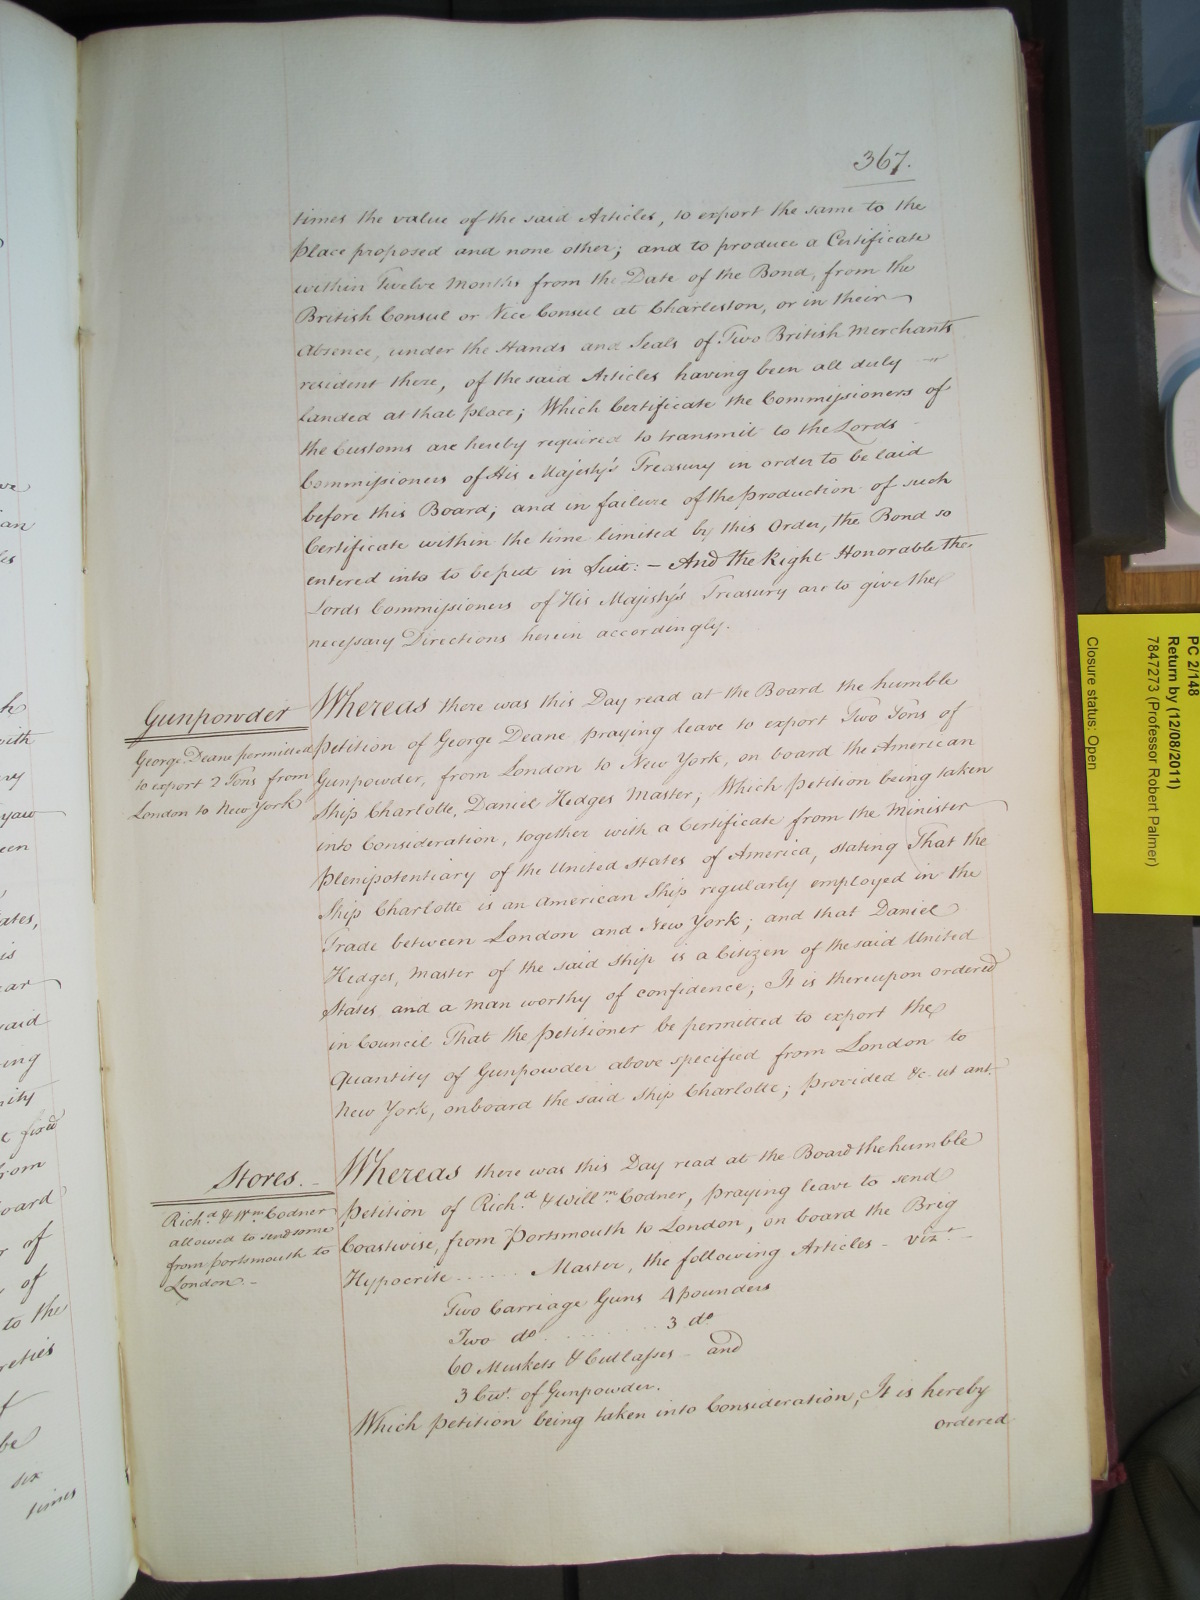 367.
times the value of the said Articles, to export the same to the
Place proposed and none other; and to produce a Certificate
within Twelve Months from the Date of the Bond, from the
British Consul or Vice Consul at Charleston, or in their
absence, under the Hands and Seals of Two British Merchants
resident there, of the said Articles having been all duly
landed at that place; Which Certificate the Commissioners of
the Customs are hereby required to transmit to the Lords
Commissioners of His Majesty's Treasury in order to be laid
before this Board; and in failure of the production of such
Certificate within the time limited by this Order, the Bond so
entered into to be put in Suit: – And the Right Honorable the
Lords Commissioners of His Majesty's Treasury are to give the
necessary Directions herein accordingly.
Gunpowder
George Deane permitted
to export 2 Tons from
London to New York
Whereas there was this Day read at the Board the humble
Petition of George Deane praying leave to export Two Tons of
Gunpowder, from London to New York, on board the American
Ship Charlotte, Daniel Hedges Master; Which Petition being taken
into Consideration, together with a Certificate from the Minister
Plenipotentiary of the United States of America, stating That the
Ship Charlotte is an American Ship regularly employed in the
Trade between London and New York; and that Daniel
Hedges, Master of the said Ship is a Citizen of the said United
States and a man worthy of confidence; It is thereupon ordered
in Council That the Petitioner be permitted to export the
Quantity of Gunpowder above specified from London to
New York, onboard the said Ship Charlotte; provided &c. ut ant:
Stores. –
Richd. & Wm. Codner
allowed to send some
from Portsmouth to
London. –
Whereas there was this Day read at the Board the humble
Petition of Richd. & Willm. Codner, praying leave to send
Coastwise, from Portsmouth to London, on board the Brig
Hypocrite ....... Master, the following Articles – vizt. –
Two Carriage Guns 4 pounders
Two do. ......... 3 do.
60 Muskets & Cutlasses – and
3 Cwt. of Gunpowder.
Which Petition being taken into Consideration, It is hereby
ordered
an
ith
een
ates,
is
said
ing
from
oard
of
of
to the
be
six
times
PC 2/148
Return by (12/08/2011)
7847273 (Professor Robert Palmer)
Closure status: Open